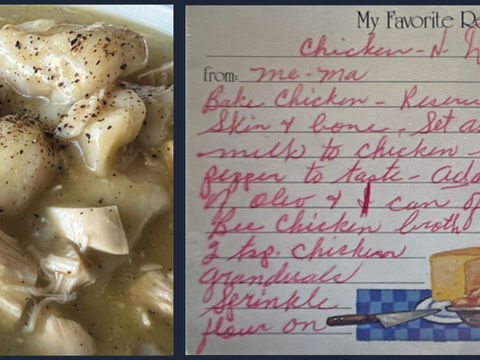 My Favorite Re
Chicken - N-
from: Me-Ma
Bake Chicken - Reserve
Skin & bone. Set as
milk to chicken -
pepper to taste - Add
of oleo & 1 can of
Bee Chicken broth
2 tsp. chicken
granduals
Sprinkle
flour on